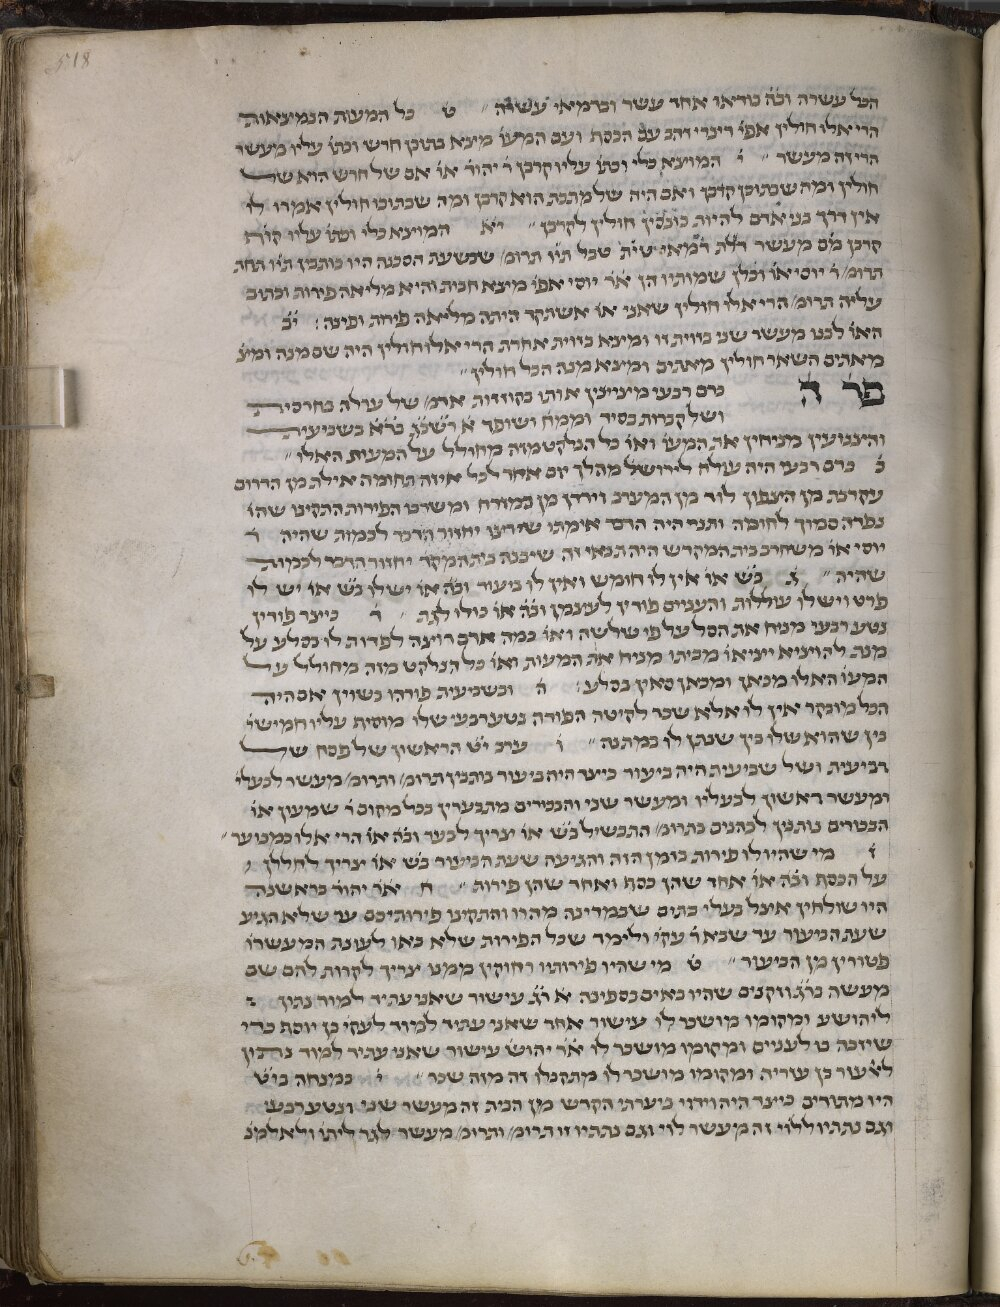 518
הכל עשרה ובה בודאו אחד עשר ובדמאי עשרה ׳׳ ט כל המעות הנמיצאות
הרי אלו חולין אפי׳ דינרי זהב עם הכסף ועם המעו׳ מיצא בתוכן חרש וכתו׳ עליו מעשר
הרי זה מעשר ׳׳ י המוי׳צא כלי וכתו׳ עליו קרבן ר׳ יהוד׳ או׳ אם של חרש הוא של
חולין ומה שבתוכן קרבן ואם היה של מתכת הוא קרבן ומה שבתוכו חולין אמרו לו
אין דרך בני אדם להיות כונסין חולין לקרבן ׳׳ יא המויצא כלי וכתו׳ עליו קוף
קרבן מם מעשר דלת דמאי טית טבל תיו תרומ׳ שבשעת הסכנה היו כותבין תיו תחת
תרומ׳ ר׳ יוסי או׳ וכלן שמותיו הן אר׳ יוסי אפי׳ מיצא חבית והיא מליאה פירות וכתוב
עליה תרומ׳ הרי אלו חולין שאני או׳ אשתקד היתה מליאה פירות ופינה : יב
האו׳ לבנו מעשר שני בזוית זו ומיצא בזוית אחרת הרי אלו חולין היה שם מנה ומיצ׳
מאתים השאר חולין מאתים ומיצא מנה הכל חולין ׳׳
פר׳ ה
כרם רבעי מיציינין אותו בקוזזות אדמ׳ של ערלה בחרסית
ושל קברות בסיד וממח׳ ושופך א׳ רשב׳ג׳ בד׳א בשביעית
והיצנועין מניחין את המעו׳ ואו׳ כל הנלקט מזה מחולל על המעות האלו ׳׳
ב כרם רבעי היה עולה לירושל׳ מהלך יום אחד לכל איזה תחומה אילת מן הדרום
עקרבת מן היצפון לוד מן המערב וירדן מן המזרח ומשרבו הפירות התקינו שהו׳
נפדה סמוך לחומה ותני היה הדבר אימתו שירצו יחזור הדבר לכמות שהיה ר׳
יוסי או׳ משחרב בית המקדש היה תנאי זה שיבנה בית המקד׳ יחזור הדבר לכמות
שהיה ׳׳ ג בש׳ או׳ אין לו חומש ואין לו ביעור ובה׳ או׳ יש לו בש׳ או׳ יש לו
פרט ויש לו עוללות והעניים פודין לעצמן ובה׳ או׳ כולו לגת ׳ ד כייצד פודין
נטע רבעי מניח את הסל על פי שלשה ואו׳ כמה אדם רויצה לפדות לו בסלע על
מנת להויציא ייציאו׳ מביתו מניח את המעות ואו׳ כל הנלקט מזה מיחולל על
המעו׳ האלו מכאן ומכאן סאין בסלע : ה ובשביעית פודהו בשויו אם היה
הכל מובקר אין לו אלא שכר לקיטה הפודה נטע רבעי שלו מוסיף עליו חמישי׳
בין שהוא שלו בין שנתן לו במתנה ׳׳ ו ערב י׳ט הראשון של פסח של
רביעית ושל שביעית היה ביעור כייצד היה ביעור ניתנין תרומ׳ ותרומ׳ מעשר לבעלי׳
ומעשר ראשון לבעליו ומעשר שני והבכורים מתבערין בכל מקום ר׳ שמעון או׳
הבכורים נותנין לכהנים כתרומ׳ התבשיל בש׳ או׳ יצריך לבער ובה׳ או׳ הרי אלו כמבוער ׳׳
ז מי שהיו לו פירות בזמן הזה והגיעה שעת הביעור בש׳ או׳ יצריך לחללן
על הכסף ובה׳ או׳ אחד שהן כסף ואחד שהן פירות ׳׳ ח אר׳ יהוד׳ בראשנה
היו שולחין איצל בעלי בתים שבמדינה מהרו והתקינו פירותיכם עד שלא הגיע
שעת הביעור עד שבא ר׳ עקי׳ ולימד שכל הפירות שלא באו לעונת המעשרו׳
פטורין מן הביעור ׳׳ ט מי שהיו פירותיו רחוקין ממנו יצריך לקרות להם שם
מעשה בר׳ג וזקנים שהיו באים בספינה א׳ ר׳ג עישור שאני עתיד למוד נתון
ליהושע ומקומו מושכר לו עישור אחר שאני עתיד למוד לעקי׳ בן יוסף כדי
שיזכה בו לעניים ומקומו מושכר לו אר׳ יהוש׳ עישור שאני עתיד למוד נתון
לאלעזר בן עזריה ומקומו מושכר לו מתקבלו זה מזה שכר ׳׳ י במנחה בי׳ט
היו מתודים כייצד היה וידוי ביערתי הקדש מן הבית זה מעשר שני ונטע רבעי
וגם נתתיו ללוי זה מיעשר לוי וגם נתתיו זו תרומ׳ ותרומ׳ מעשר לגר ליתו׳ ולאלמנ׳